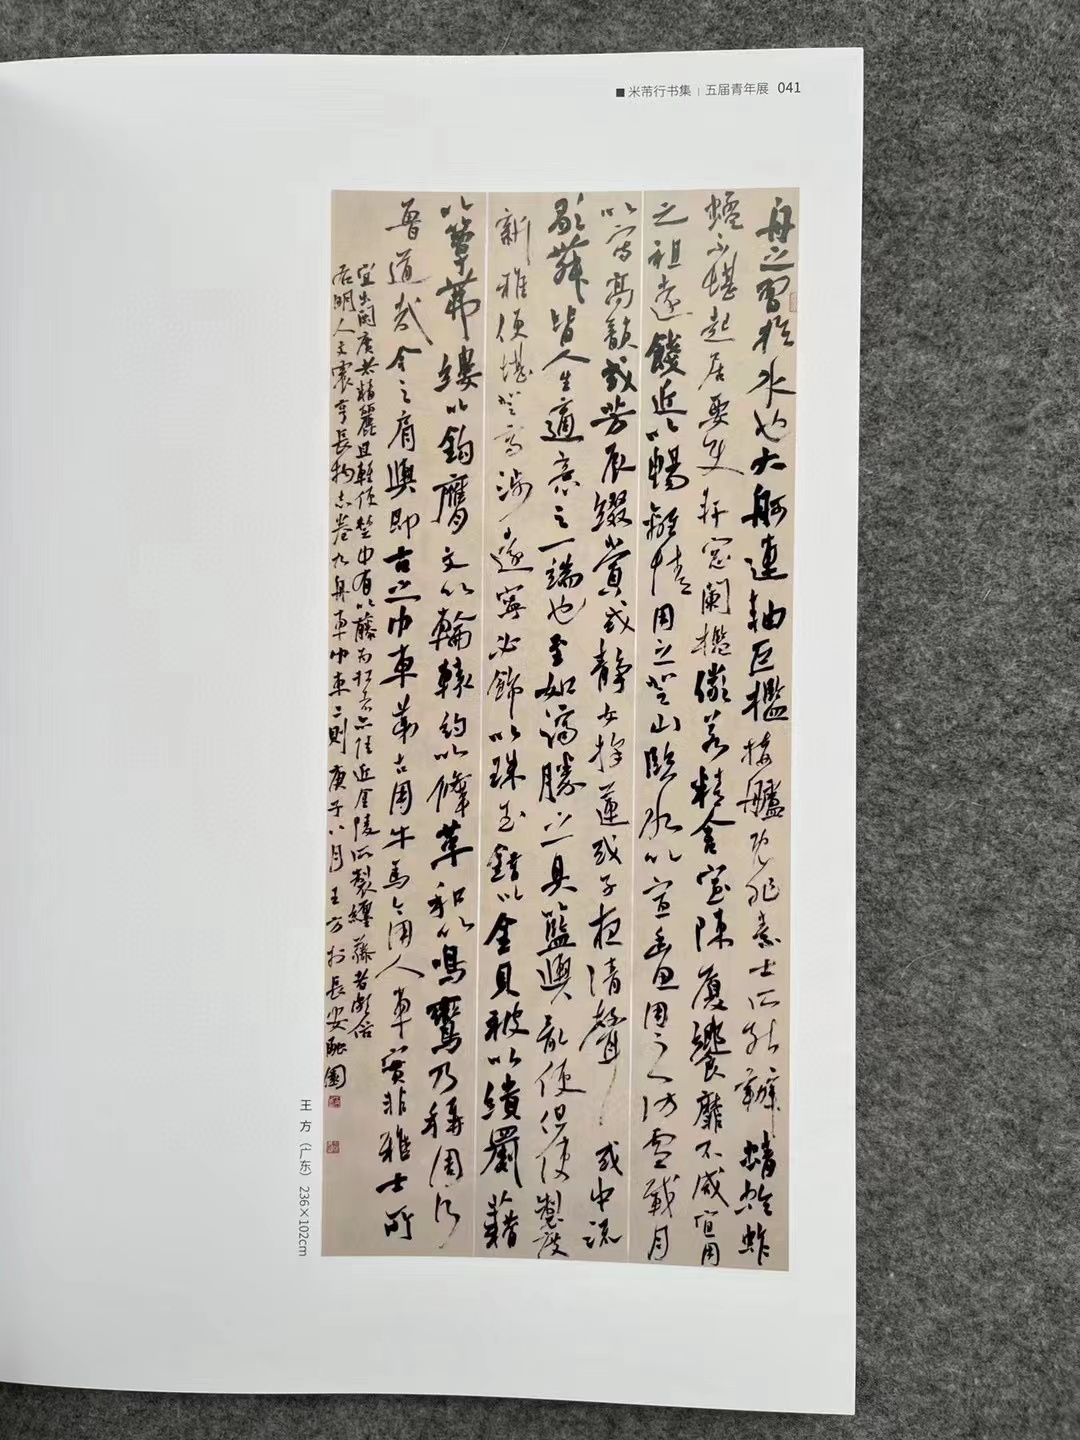 ■米芾行书集 | 五届青年展 041
舟之習於水也大舸連軸巨檻接艫既非素士所能辦蜻蛉蚱
蜢不堪起居要使軒窗闌檻儼若精舍室陳廈饗靡不咸宜用
之祖遠餞近以暢離情用之登山臨水以宣幽思用之訪雪載月
以寫高韻或芳辰綴賞或靜女採蓮或子夜清聲或中流
歌舞皆人生適意之一端也至如濟勝之具籃輿最便但使製度
新雅便堪登高涉遠寧必飾以珠玉錯以金貝被以繢罽藉
以簟茀縷以鉤膺文以輪轅約以鞗革和以鳴鸞乃稱周行
魯道哉今之肩輿即古之巾車第古用牛馬今用人車實非雅士所
宜出閩廣者精麗且輕便楚中有以藤為扛者亦佳近金陵所製纏藤者頗俗
右明人文震亨長物志卷九舟車巾車二則庚子八月王方於長安融園
王 方（广东）236×102cm